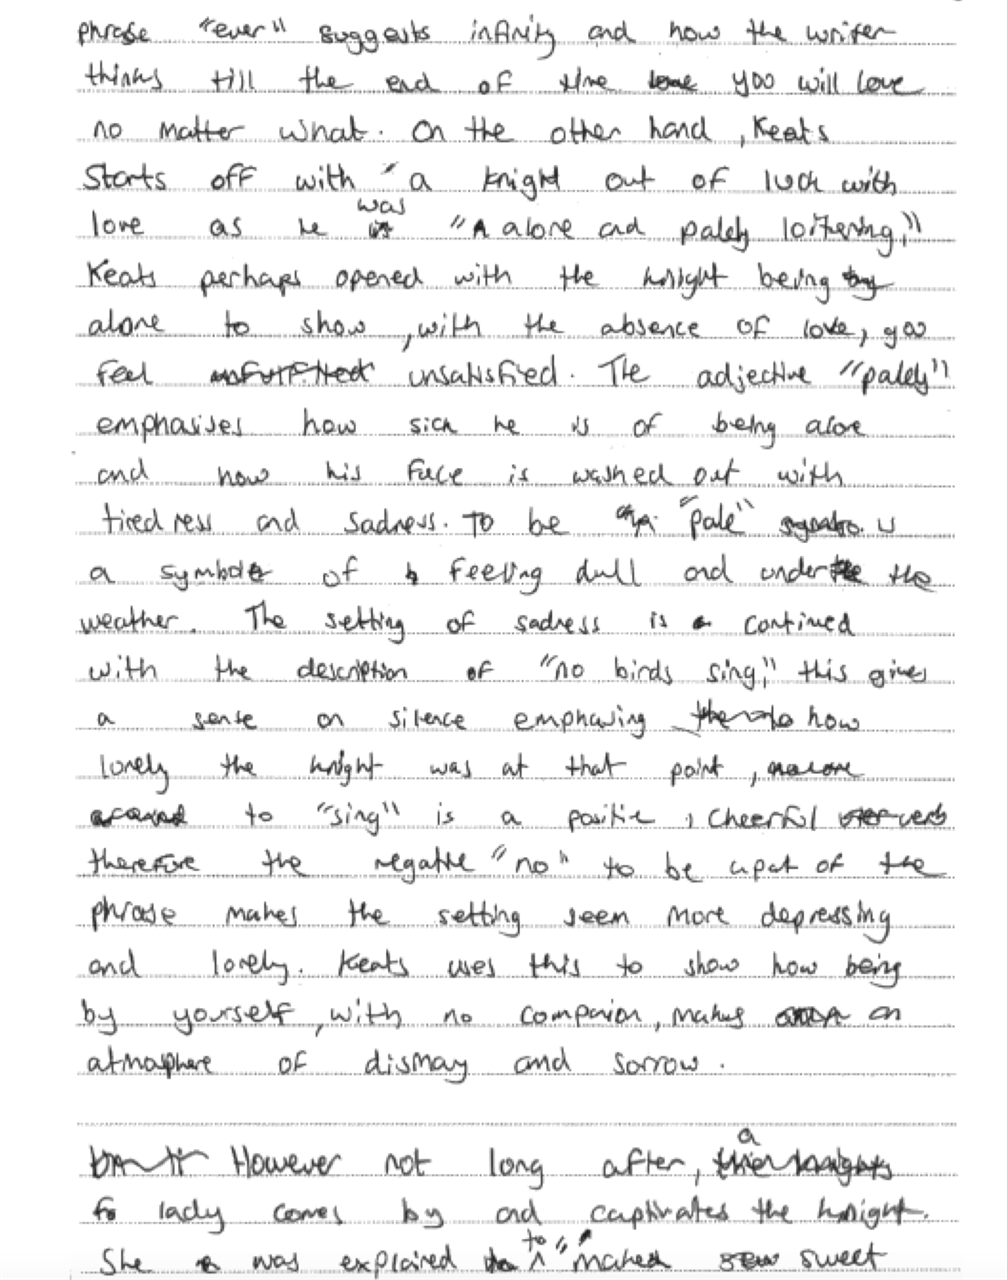 phrase "ever" suggests infinity and how the writer
thinks till the end of time love you will love
no matter what. On the other hand, Keats
Starts off with "a knight out of luck with
love as he was "A alone and palely loitering,"
Keats perhaps opened with the knight being
alone to show, with the absence of love, you
feel unfulfilled unsatisfied. The adjective "palely"
emphasises how sick he is of being alone
and how his face is washed out with
tiredness and sadness. To be "pale" is
a symbol of feeling dull and under the
weather. The setting of sadness is continued
with the description of "no birds sing," this gives
a sense on silence emphasing how
lonely the knight was at that point,
to "sing" is a positive, cheerful verb
therefore the negative "no" to be apat of the
phrase makes the setting seem more depressing
and lonely. Keats uses this to show how being
by yourself, with no companion, makes an
atmosphere of dismay and sorrow.
However not long after, a
lady comes by and captivates the knight.
She was explained to "maked sweet